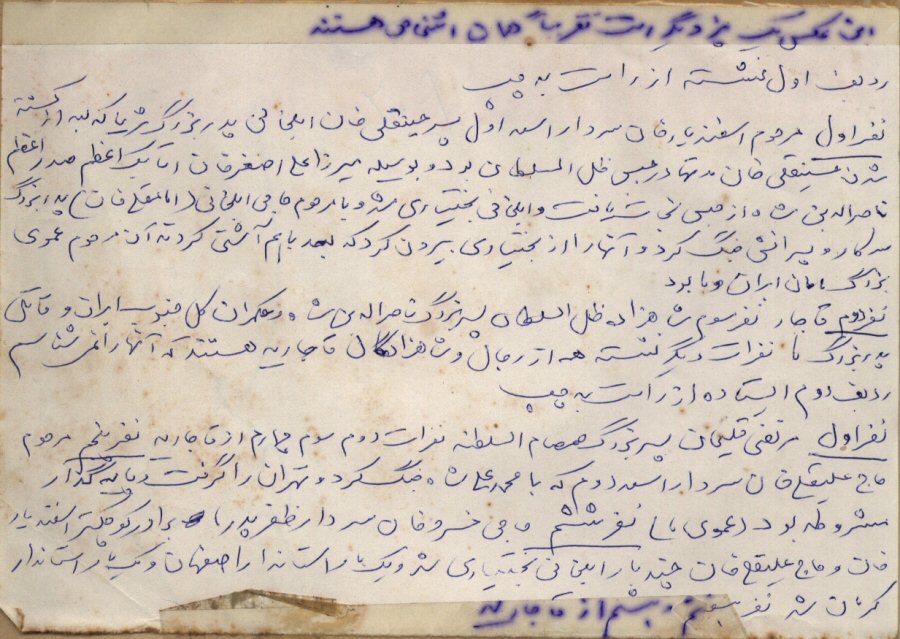 این عکس یک چیز دیگر است تقریباً همان اشخاص هستند
ردیف اول نشسته از راست به چپ
نفر اول مرحوم اسفندیار خان سردار اسعد اول پسر حسینقلی خان ایلخانی پدربزرگ ثریا که بعد از کشته
شدن حسینقلی خان مدتها در حبس ظل السلطان بود و بوسیله میرزا علی اصغر خان اتابک اعظم صدر اعظم
ناصرالدین شاه از حبس نجات یافت و ایلخانی بختیاری شد و با مرحوم حاجی ایلخانی (امامقلی خان) پدربزرگ
سرکار و پسرانش جنگ کرد و آنها را از بختیاری بیرون کرد که بعد باهم آشتی کردند آن مرحوم عموی
بزرگ مامان ایران و ما بود
نفر دوم قاجار نفر سوم شاهزاده ظل السلطان پسر بزرگ ناصرالدین شاه و حکمران کل جنوب ایران و قاتل
پدربزرگ ما نفرات دیگر نشسته همه از رجال و شاهزادگان قاجاریه هستند که آنها را نمی شناسم
ردیف دوم ایستاده از راست به چپ
نفر اول مرتضی قلیخان پسر بزرگ صمصام السلطنه نفرات دوم سوم چهارم از قاجاریه نفر پنجم مرحوم
حاج علیقلی خان سردار اسعد دوم که با محمد علی شاه جنگ کرد و تهران را گرفت و پایه گذار
مشروطه بود (عموی ما) نفر ششم حاجی خسرو خان سردار ظفر پدر ما برادر کوچکتر اسفندیار
خان و حاج علیقلی خان چند بار ایلخانی بختیاری شد و یک بار استاندار اصفهان و یک بار استاندار
کرمان شد نفر هفتم و هشتم از قاجاریه